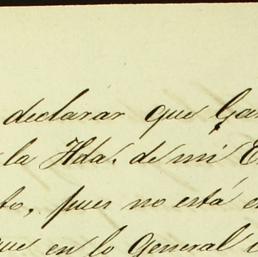 declarar que Gar
la Hda. de mi E
to, pues no está e
que en lo General